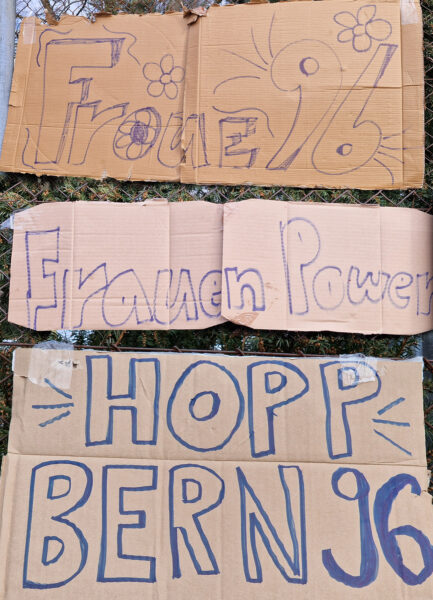 Froue 96
Frauen Power
HOPP
BERN 96